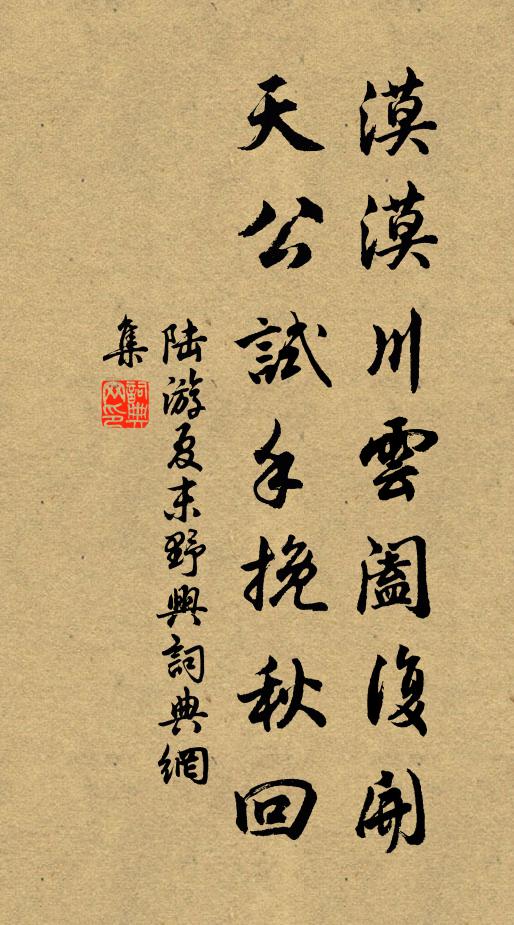 漠漠川雲闔復開
天公試手挽秋回
陆游夏末野興詞典網
集
詞典網印